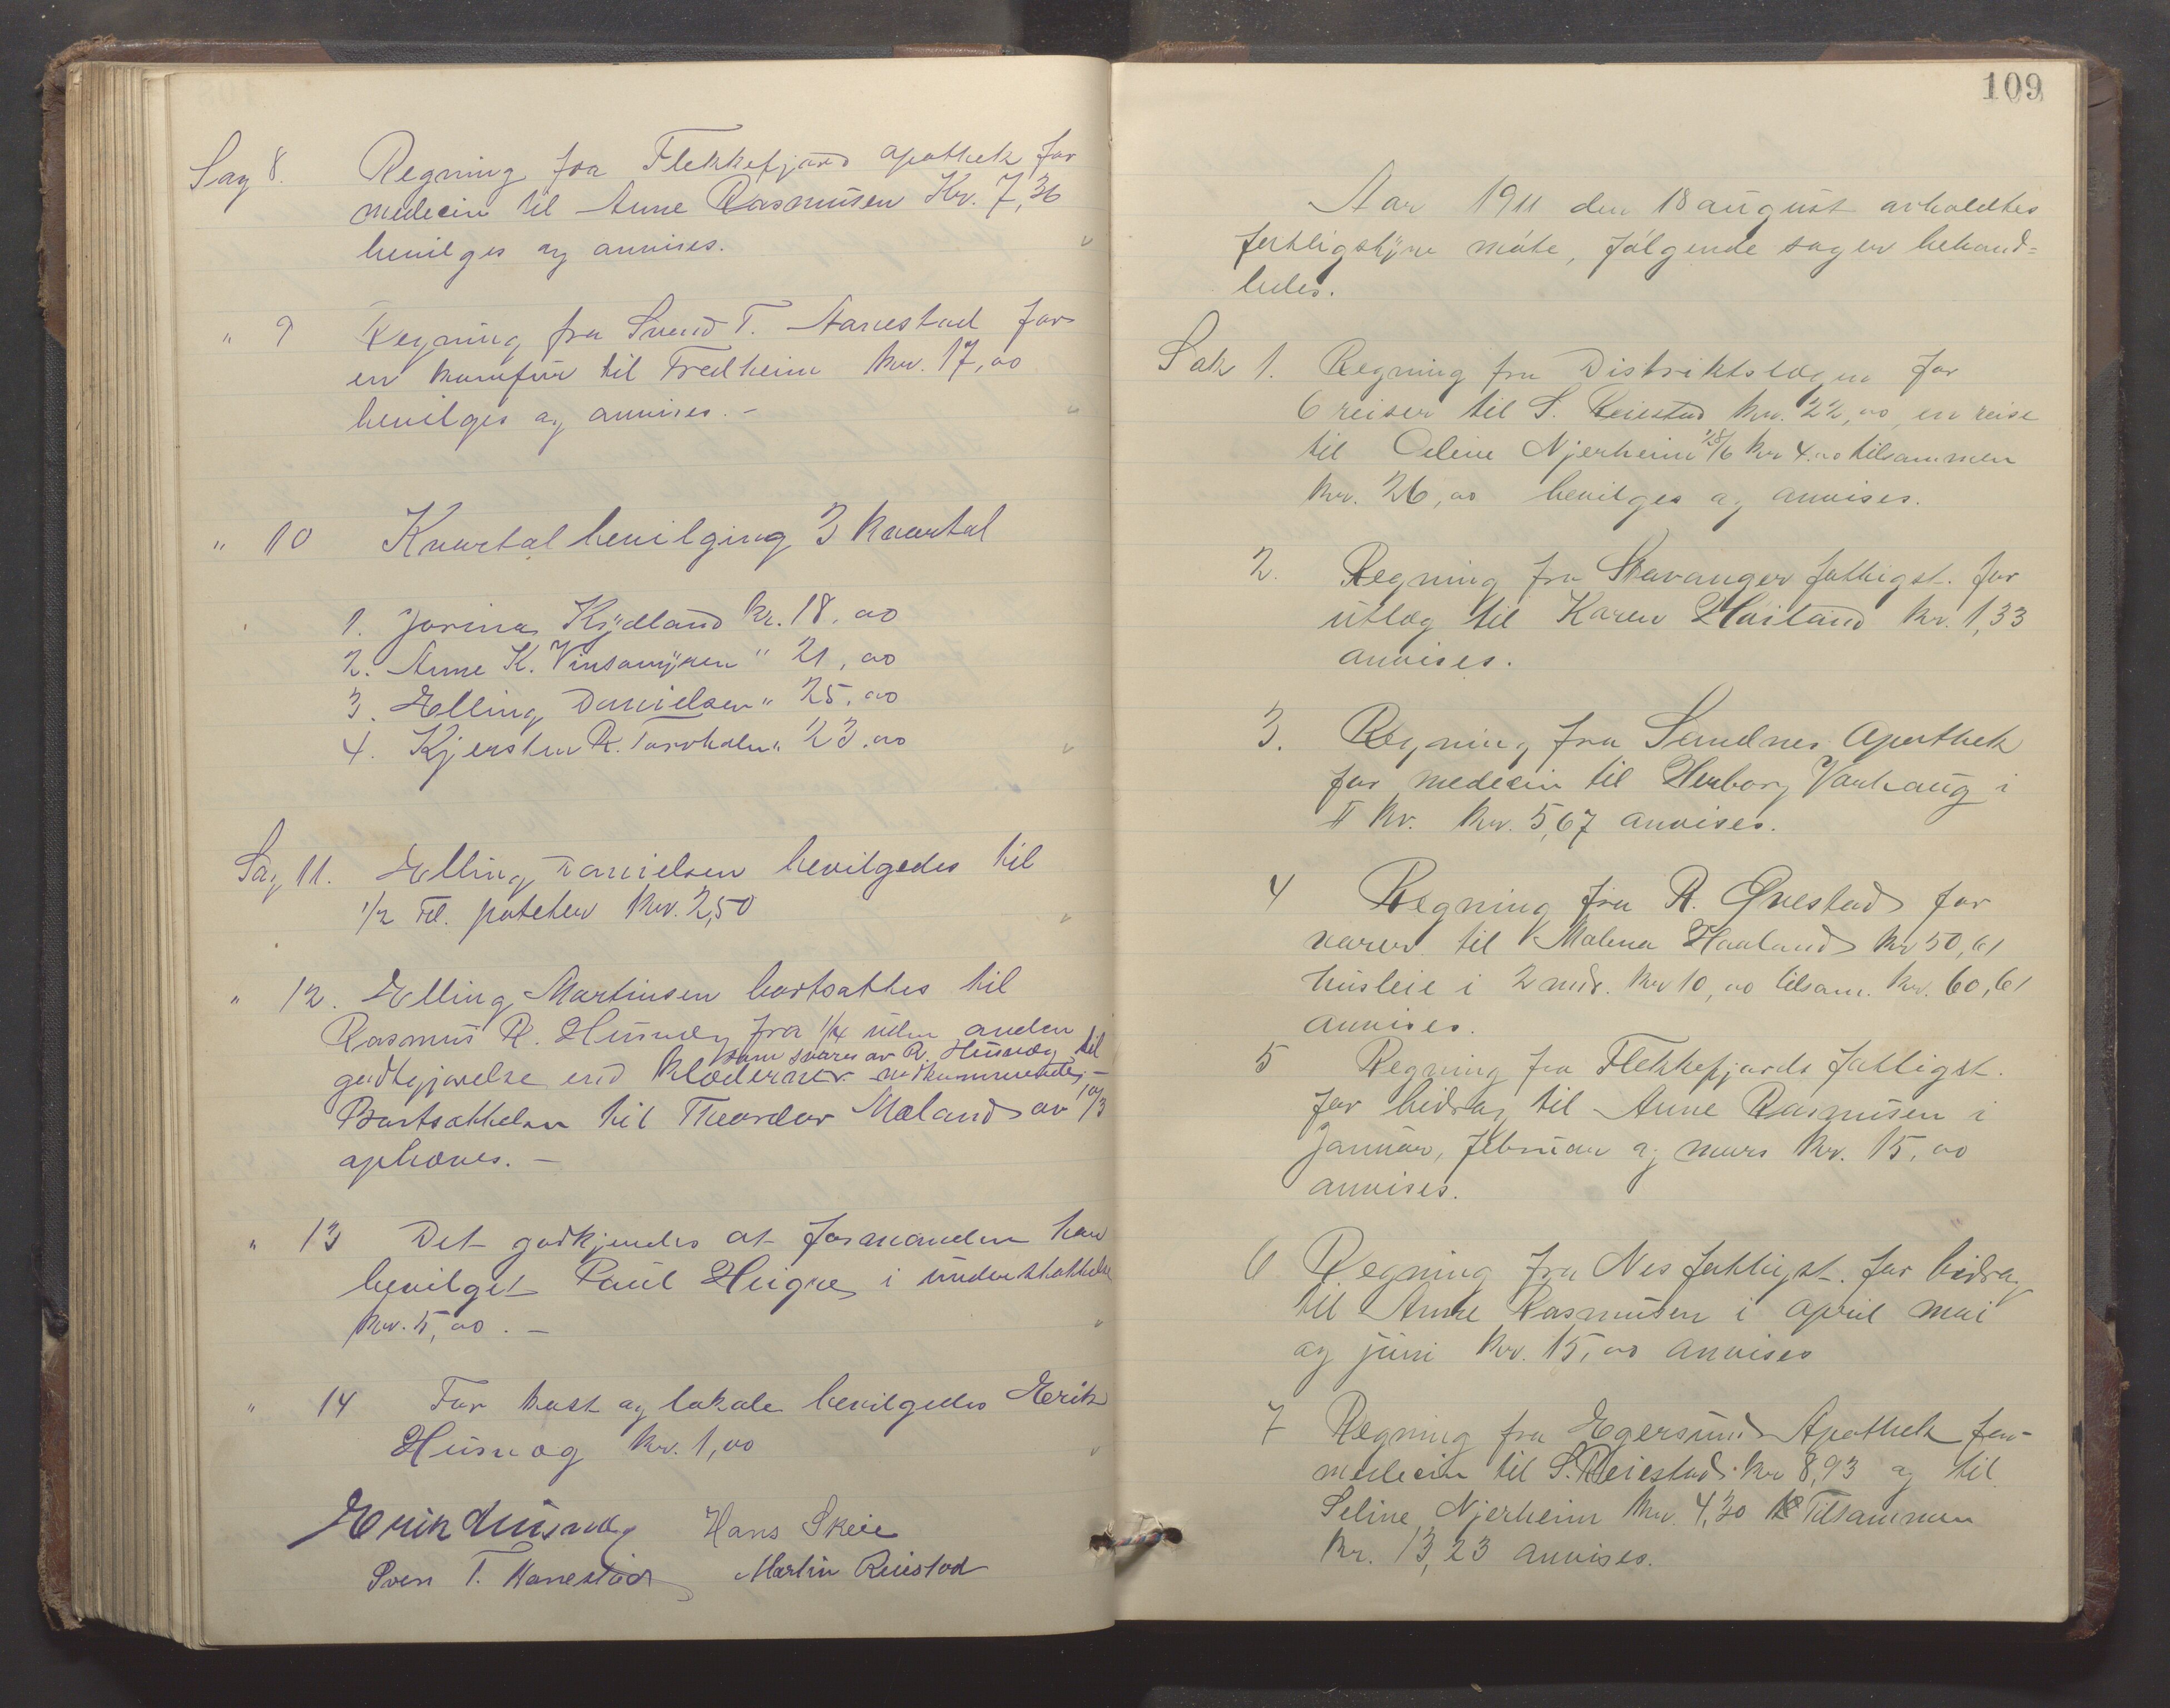 Sag 8. Regning fra Flekkefjord apothek for
medecin til Anne Rasmusen Kr. 7,36
bevilges og anvises.
" 9 Regning fra Svend T. Aanestad for
en komfur til Fredheim kr. 17,00
bevilges og anvises. -
" 10 Kvartal bevilging 3 kvartal
1. Jorina Kydland kr. 18,00
2. Anne K. Vinsamyren " 21,00
3. Elling Danielsen " 25,00
4. Kjersten R. " 23,00
Sag 11. Elling Danielsen bevilgedes til
1/2 Td. poteter kr. 2,50
" 12. Elling Martinsen bortsattes til
Rasmus R. Husveg fra 1/4 uden anden
som svares av R. Husveg til
godtgjørelse end klæderne nedkommende, -
Bortsettelsen til Theordor Mæland av 10/3
ophæves. -
" 13 Det godkjendes at formanden har
bevilget Paul Heigre i understøttelse
kr. 5,00. -
" 14 For kost og lokale bevilgedes Erik
Husveg kr. 1,00
Erik Husveg Hans Skeie
Sven T. Aanestad Martin Reiestad
109
Aar 1911 den 18 august avholdtes
fattigstyre møte, følgende sager behand-
ledes.
Sak 1. Regning fra Distriktslægen for
6 reiser til S. Reiestad kr. 22,00, en reise
til Oline Njerheim 28/6 kr 4.00 tilsammen
kr. 26,00 bevilges og anvises.
2. Regning fra Stavanger fattigst. for
utlæg til Karen Høiland kr. 1,33
anvises.
3. Regning fra Sandnes Apothek
for medecin til Herborg Varhaug i
II kv. kr. 5,67 anvises.
4 Regning fra R. Ovestad for
varer til Malena Haaland kr 50,61
husleie i 2 mdr. kr 10,00 tilsam. kr. 60,61
anvises.
5 Regning fra Flekkefjords fattigst.
for bidrag til Anne Rasmusen i
Januar, februar og mars kr. 15,00
anvises.
6 Regning fra Nes fattigst. for bidrag
til Anne Rasmusen i april mai
og juni kr. 15,00 anvises
7 Regning fra Egersund Apothek for
medecin til S. Reiestad kr 8,93 og til
Seline Njerheim kr. 4,30 Tilsammen
kr. 13,23 anvises.